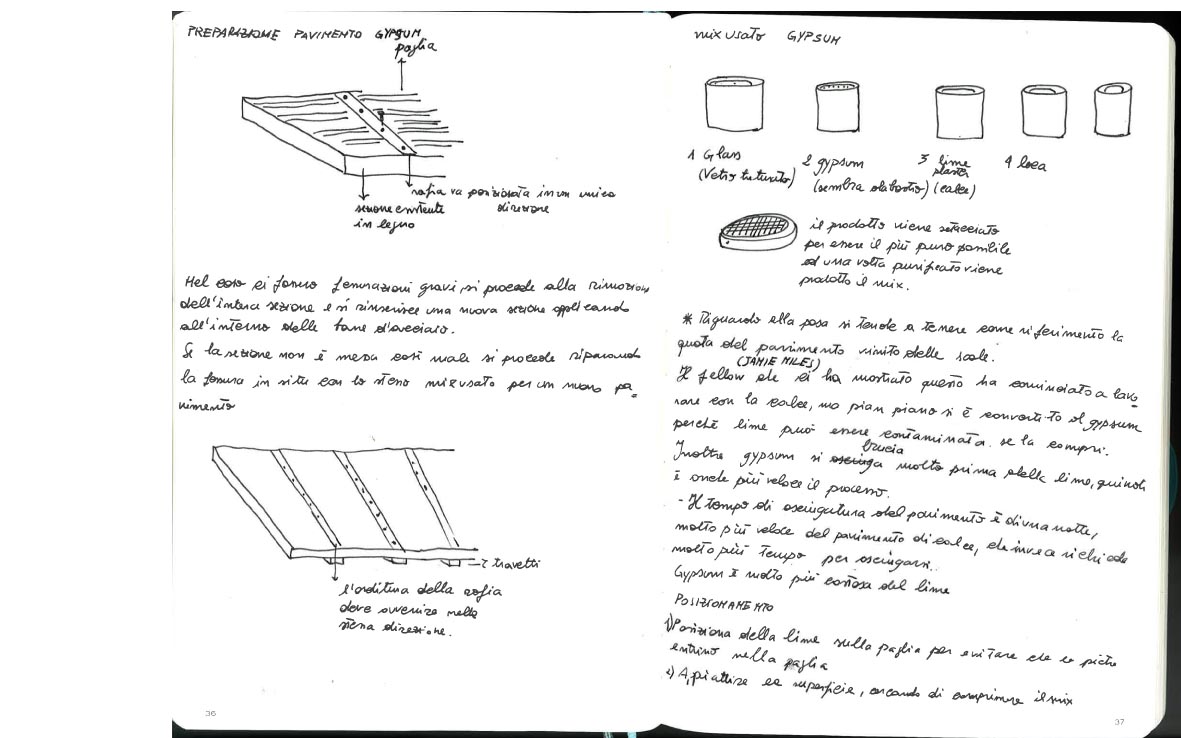 PREPARAZIONE PAVIMENTO GYPSUM
paglia
rafia va posizionata in un unica
direzione
sezione esistente
in legno
Nel caso ci fossero fessurazioni gravi, si procede alla rimozione
dell'intera sezione e si rinserisce una nuova sezione applicando
all'interno delle barre d'acciaio.
Se la sezione non è messa così male si procede riparando
la fessura in situ con lo stesso mix usato per un nuovo pa-
vimento
travetti
l'orditura della rafia
deve avvenire nella
stessa direzione.
36
mix usato GYPSUM
1 Glass
(Vetro triturato)
2 gypsum
(sembra alabastro)
3 lime
plaster
(calce)
4
il prodotto viene setacciato
per essere il più puro possibile
ed una volta purificato viene
prodotto il mix.
* Riguardo alla posa si tende a tenere come riferimento la
quota del pavimento finito delle scale.
(JAMIE MILES)
Il fellow che ci ha mostrato questo ha cominciato a lavo-
rare con la calce, ma pian piano si è convertito al gypsum
perché lime può essere contaminata se la compri.
brucia
Inoltre gypsum si molto prima della lime, quindi
è anche più veloce il processo.
- Il tempo di asciugatura del pavimento è di una notte,
molto più veloce del pavimento di calce, che invece richiede
molto più tempo per asciugarsi.
Gypsum è molto più costosa del lime
POSIZIONAMENTO
1) Posiziona della lime sulla paglia per evitare che le pietre
entrino nella paglia
2) Appiattire la superficie, cercando di comprimere il mix
37